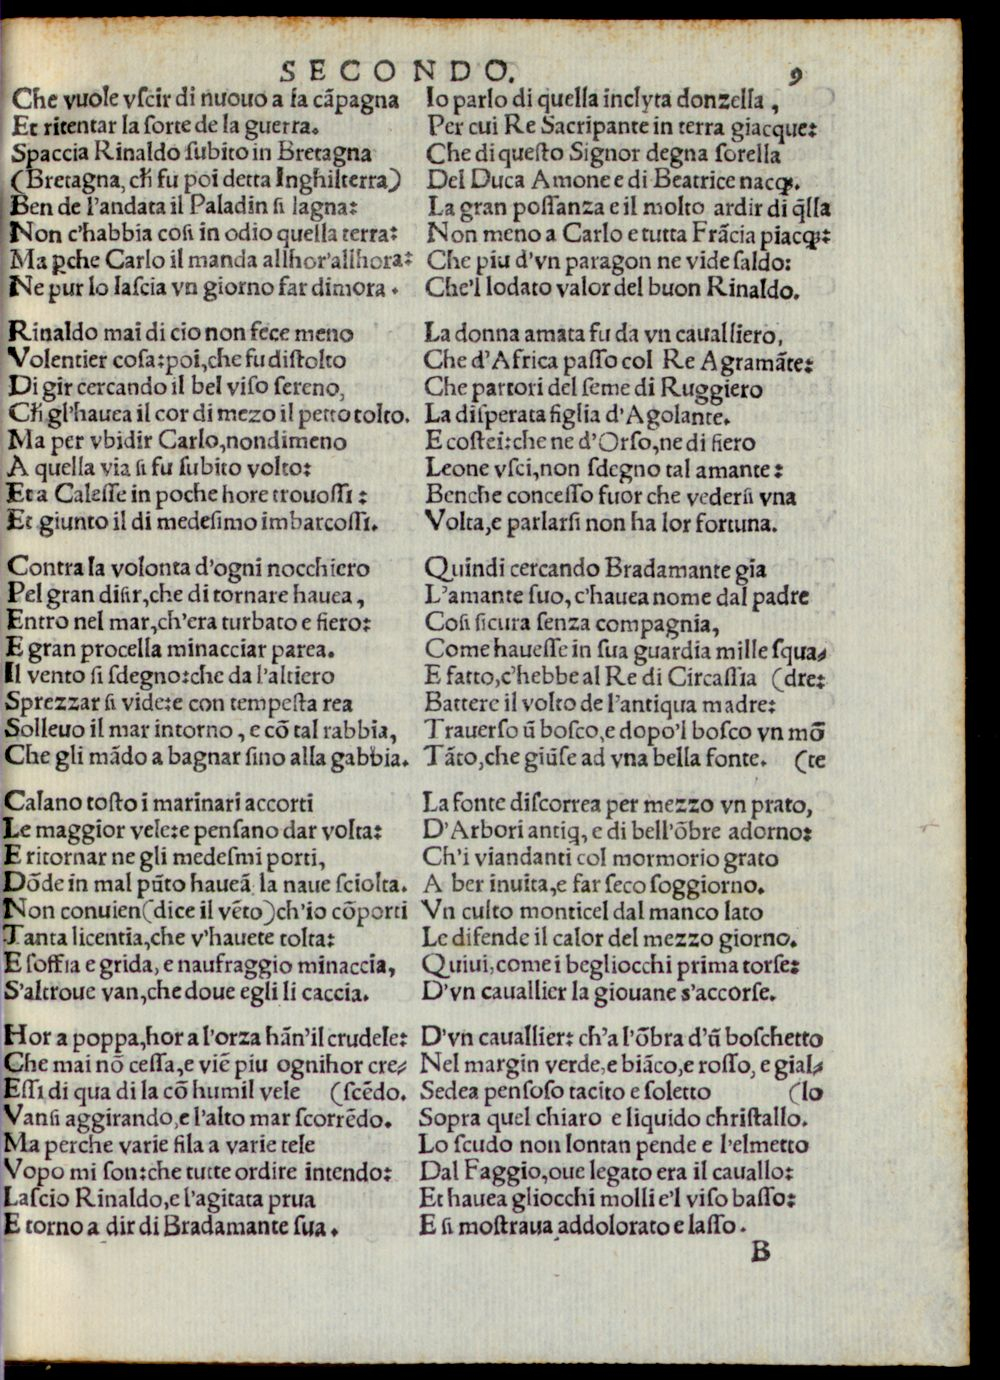 SECONDO. 9
Che vuole vſcir di nuouo a la cãpagna
Et ritentar la ſorte de la guerra.
Spaccia Rinaldo ſubito in Bretagna
(Bretagna, ch̃ fu poi detta Inghilterra)
Ben de l'andata il Paladin ſi lagna:
Non c'habbia coſi in odio quella terra:
Ma ꝑche Carlo il manda allhor'allhora:
Ne pur lo laſcia vn giorno far dimora.
Rinaldo mai di cio non fece meno
Volentier coſa:poi,che fu diſtolto
Di gir cercando il bel viſo ſereno,
Ch̃ gl'hauea il cor di mezo il petto tolto.
Ma per vbidir Carlo,nondimeno
A quella via ſi fu ſubito volto:
Et a Caleſſe in poche hore trouoſſi:
Et giunto il di medeſimo imbarcoſſi.
Contra la volonta d'ogni nocchiero
Pel gran diſir,che di tornare hauea,
Entro nel mar,ch'era turbato e fiero:
E gran procella minacciar parea.
Il vento ſi ſdegno:che da l'altiero
Sprezzar ſi vide:e con tempeſta rea
Solleuo il mar intorno, e cõ tal rabbia,
Che gli mãdo a bagnar ſino alla gabbia.
Calano toſto i marinari accorti
Le maggior vele:e penſano dar volta:
E ritornar ne gli medeſmi porti,
Dõde in mal pũto haueã la naue ſciolta.
Non conuien(dice il vẽto)ch'io cõporti
Tanta licentia,che v'hauete tolta:
E ſoffia e grida, e naufraggio minaccia,
S'altroue van,che doue egli li caccia.
Hor a poppa,hor a l'orza hãn'il crudele:
Che mai nõ ceſſa,e viẽ piu ognihor cre⸗
Eſſi di qua di la cõ humil vele (ſcẽdo.
Vanſi aggirando,e l'alto mar ſcorrẽdo.
Ma perche varie fila a varie tele
Vopo mi ſon:che tutte ordire intendo:
Laſcio Rinaldo,e l'agitata prua
E torno a dir di Bradamante ſua.
Io parlo di quella inclyta donzella,
Per cui Re Sacripante in terra giacque:
Che di queſto Signor degna ſorella
Del Duca Amone e di Beatrice nacq̃.
La gran poſſanza e il molto ardir di q̃lla
Non meno a Carlo e tutta Frãcia piacq̃:
Che piu d'vn paragon ne vide ſaldo:
Che'l lodato valor del buon Rinaldo.
La donna amata fu da vn caualliero,
Che d'Africa paſſo col Re Agramãte:
Che partori del ſeme di Ruggiero
La diſperata figlia d'Agolante.
E coſtei:che ne d'Orſo,ne di fiero
Leone vſci,non ſdegno tal amante:
Benche conceſſo fuor che vederſi vna
Volta,e parlarſi non ha lor fortuna.
Quindi cercando Bradamante gia
L'amante ſuo, c'hauea nome dal padre
Coſi ſicura ſenza compagnia,
Come haueſſe in ſua guardia mille ſqua⸗
E fatto,c'hebbe al Re di Circaſſia (dre:
Battere il volto de l'antiqua madre:
Trauerſo ũ boſco,e dopo'l boſco vn mõ
Tãto,che giũſe ad vna bella fonte. (te
La fonte diſcorrea per mezzo vn prato,
D'Arbori antiq̃, e di bell'õbre adorno:
Ch'i viandanti col mormorio grato
A ber inuita,e far ſeco ſoggiorno.
Vn culto monticel dal manco lato
Le difende il calor del mezzo giorno.
Quiui,come i begliocchi prima torſe:
D'vn cauallier la giouane s'accorſe.
D'vn cauallier: ch'a l'õbra d'ũ boſchetto
Nel margin verde,e biãco,e roſſo, e gial⸗
Sedea penſoſo tacito e ſoletto (lo
Sopra quel chiaro e liquido chriſtallo.
Lo ſcudo non lontan pende e l'elmetto
Dal Faggio,oue legato era il cauallo:
Et hauea gliocchi molli e'l viſo baſſo:
E ſi moſtraua addolorato e laſſo.
B